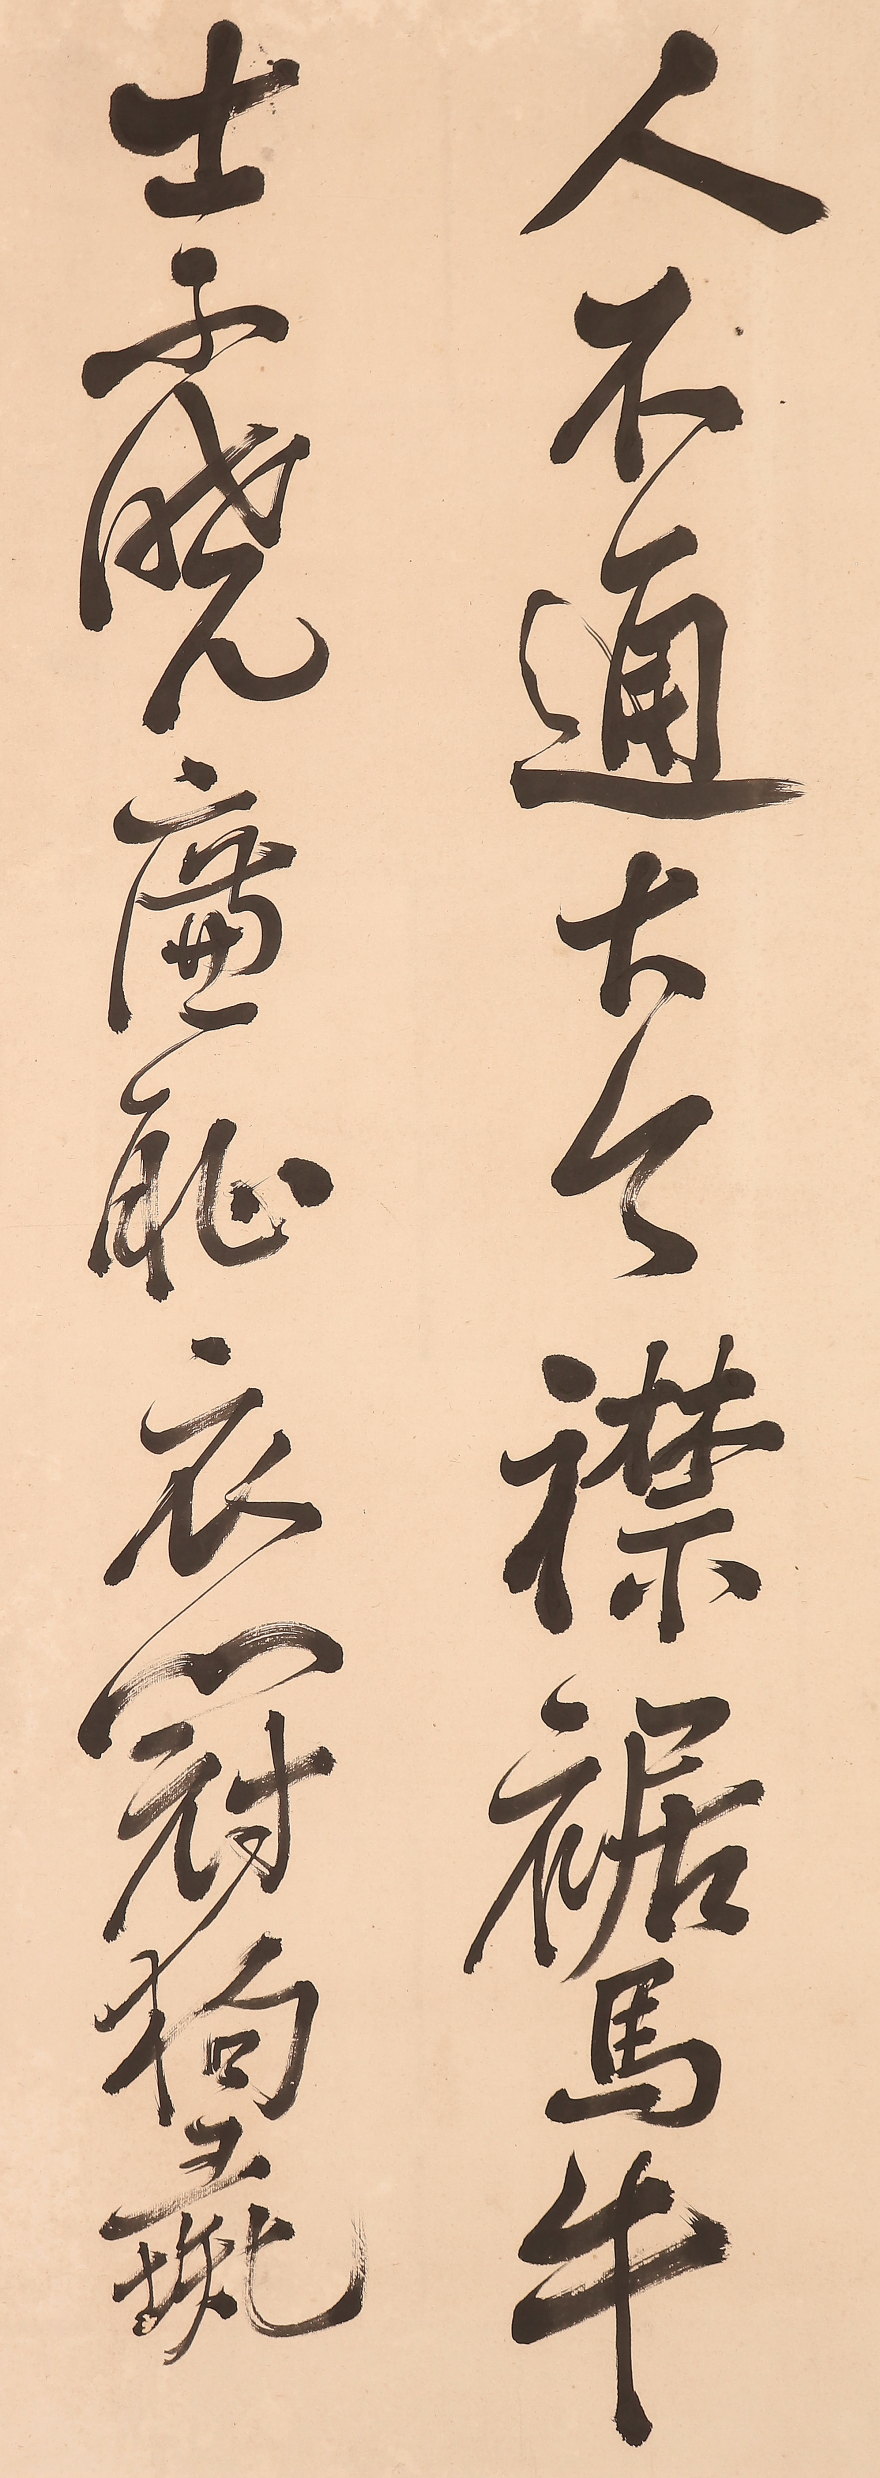 人不通古今襟裾馬牛
士不曉廉恥衣冠狗彘